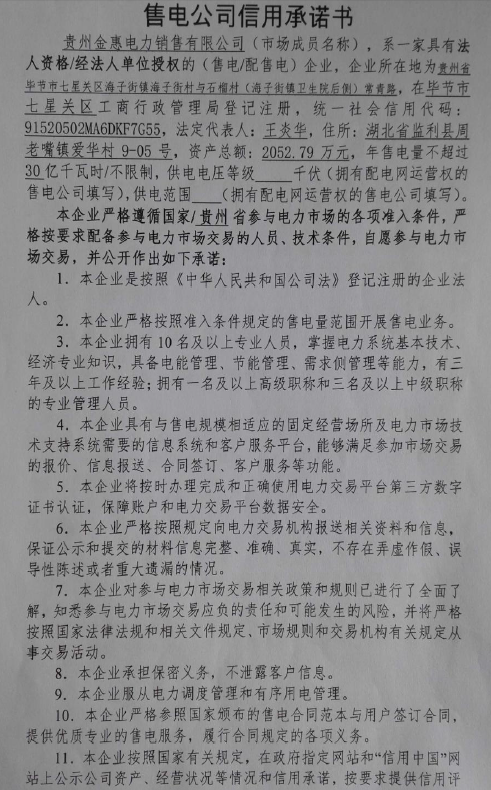 售电公司信用承诺书
贵州金惠电力销售有限公司（市场成员名称），系一家具有法
人资格/经法人单位授权的（售电/配售电）企业，企业所在地为贵州省
毕节市七星关区海子街镇海子街村与石榴村（海子街镇卫生院后侧）常青路，在毕节市
七星关区工商行政管理局登记注册，统一社会信用代码：
91520502MA6DKF7G55，法定代表人：王炎华，住所：湖北省监利县周
老嘴镇爱华村 9-05 号，资产总额：2052.79 万元，年售电量不超过
30亿千瓦时/不限制，供电电压等级____千伏（拥有配电网运营权的
售电公司填写），供电范围____（拥有配电网运营权的售电公司填写）。
本企业严格遵循国家/贵州省参与电力市场的各项准入条件，严
格按要求配备参与电力市场交易的人员、技术条件，自愿参与电力市
场交易，并公开作出如下承诺：
1．本企业是按照《中华人民共和国公司法》登记注册的企业法
人。
2．本企业严格按照准入条件规定的售电量范围开展售电业务。
3．本企业拥有 10 名及以上专业人员，掌握电力系统基本技术、
经济专业知识，具备电能管理、节能管理、需求侧管理等能力，有三
年及以上工作经验；拥有一名及以上高级职称和三名及以上中级职称
的专业管理人员。
4．本企业具有与售电规模相适应的固定经营场所及电力市场技
术支持系统需要的信息系统和客户服务平台，能够满足参加市场交易
的报价、信息报送、合同签订、客户服务等功能。
5．本企业将按时办理完成和正确使用电力交易平台第三方数字
证书认证，保障账户和电力交易平台数据安全。
6．本企业严格按照规定向电力交易机构报送相关资料和信息，
保证公示和提交的材料信息完整、准确、真实，不存在弄虚作假、误
导性陈述或者重大遗漏的情况。
7．本企业对参与电力市场交易相关政策和规则已进行了全面了
解，知悉参与电力市场交易应负的责任和可能发生的风险，并将严格
按照国家法律法规和相关文件规定、市场规则和交易机构有关规定从
事交易活动。
8．本企业承担保密义务，不泄露客户信息。
9．本企业服从电力调度管理和有序用电管理。
10．本企业严格参照国家颁布的售电合同范本与用户签订合同，
提供优质专业的售电服务，履行合同规定的各项义务。
11．本企业按照国家有关规定，在政府指定网站和“信用中国”网
站上公示公司资产、经营状况等情况和信用承诺，按要求提供信用评